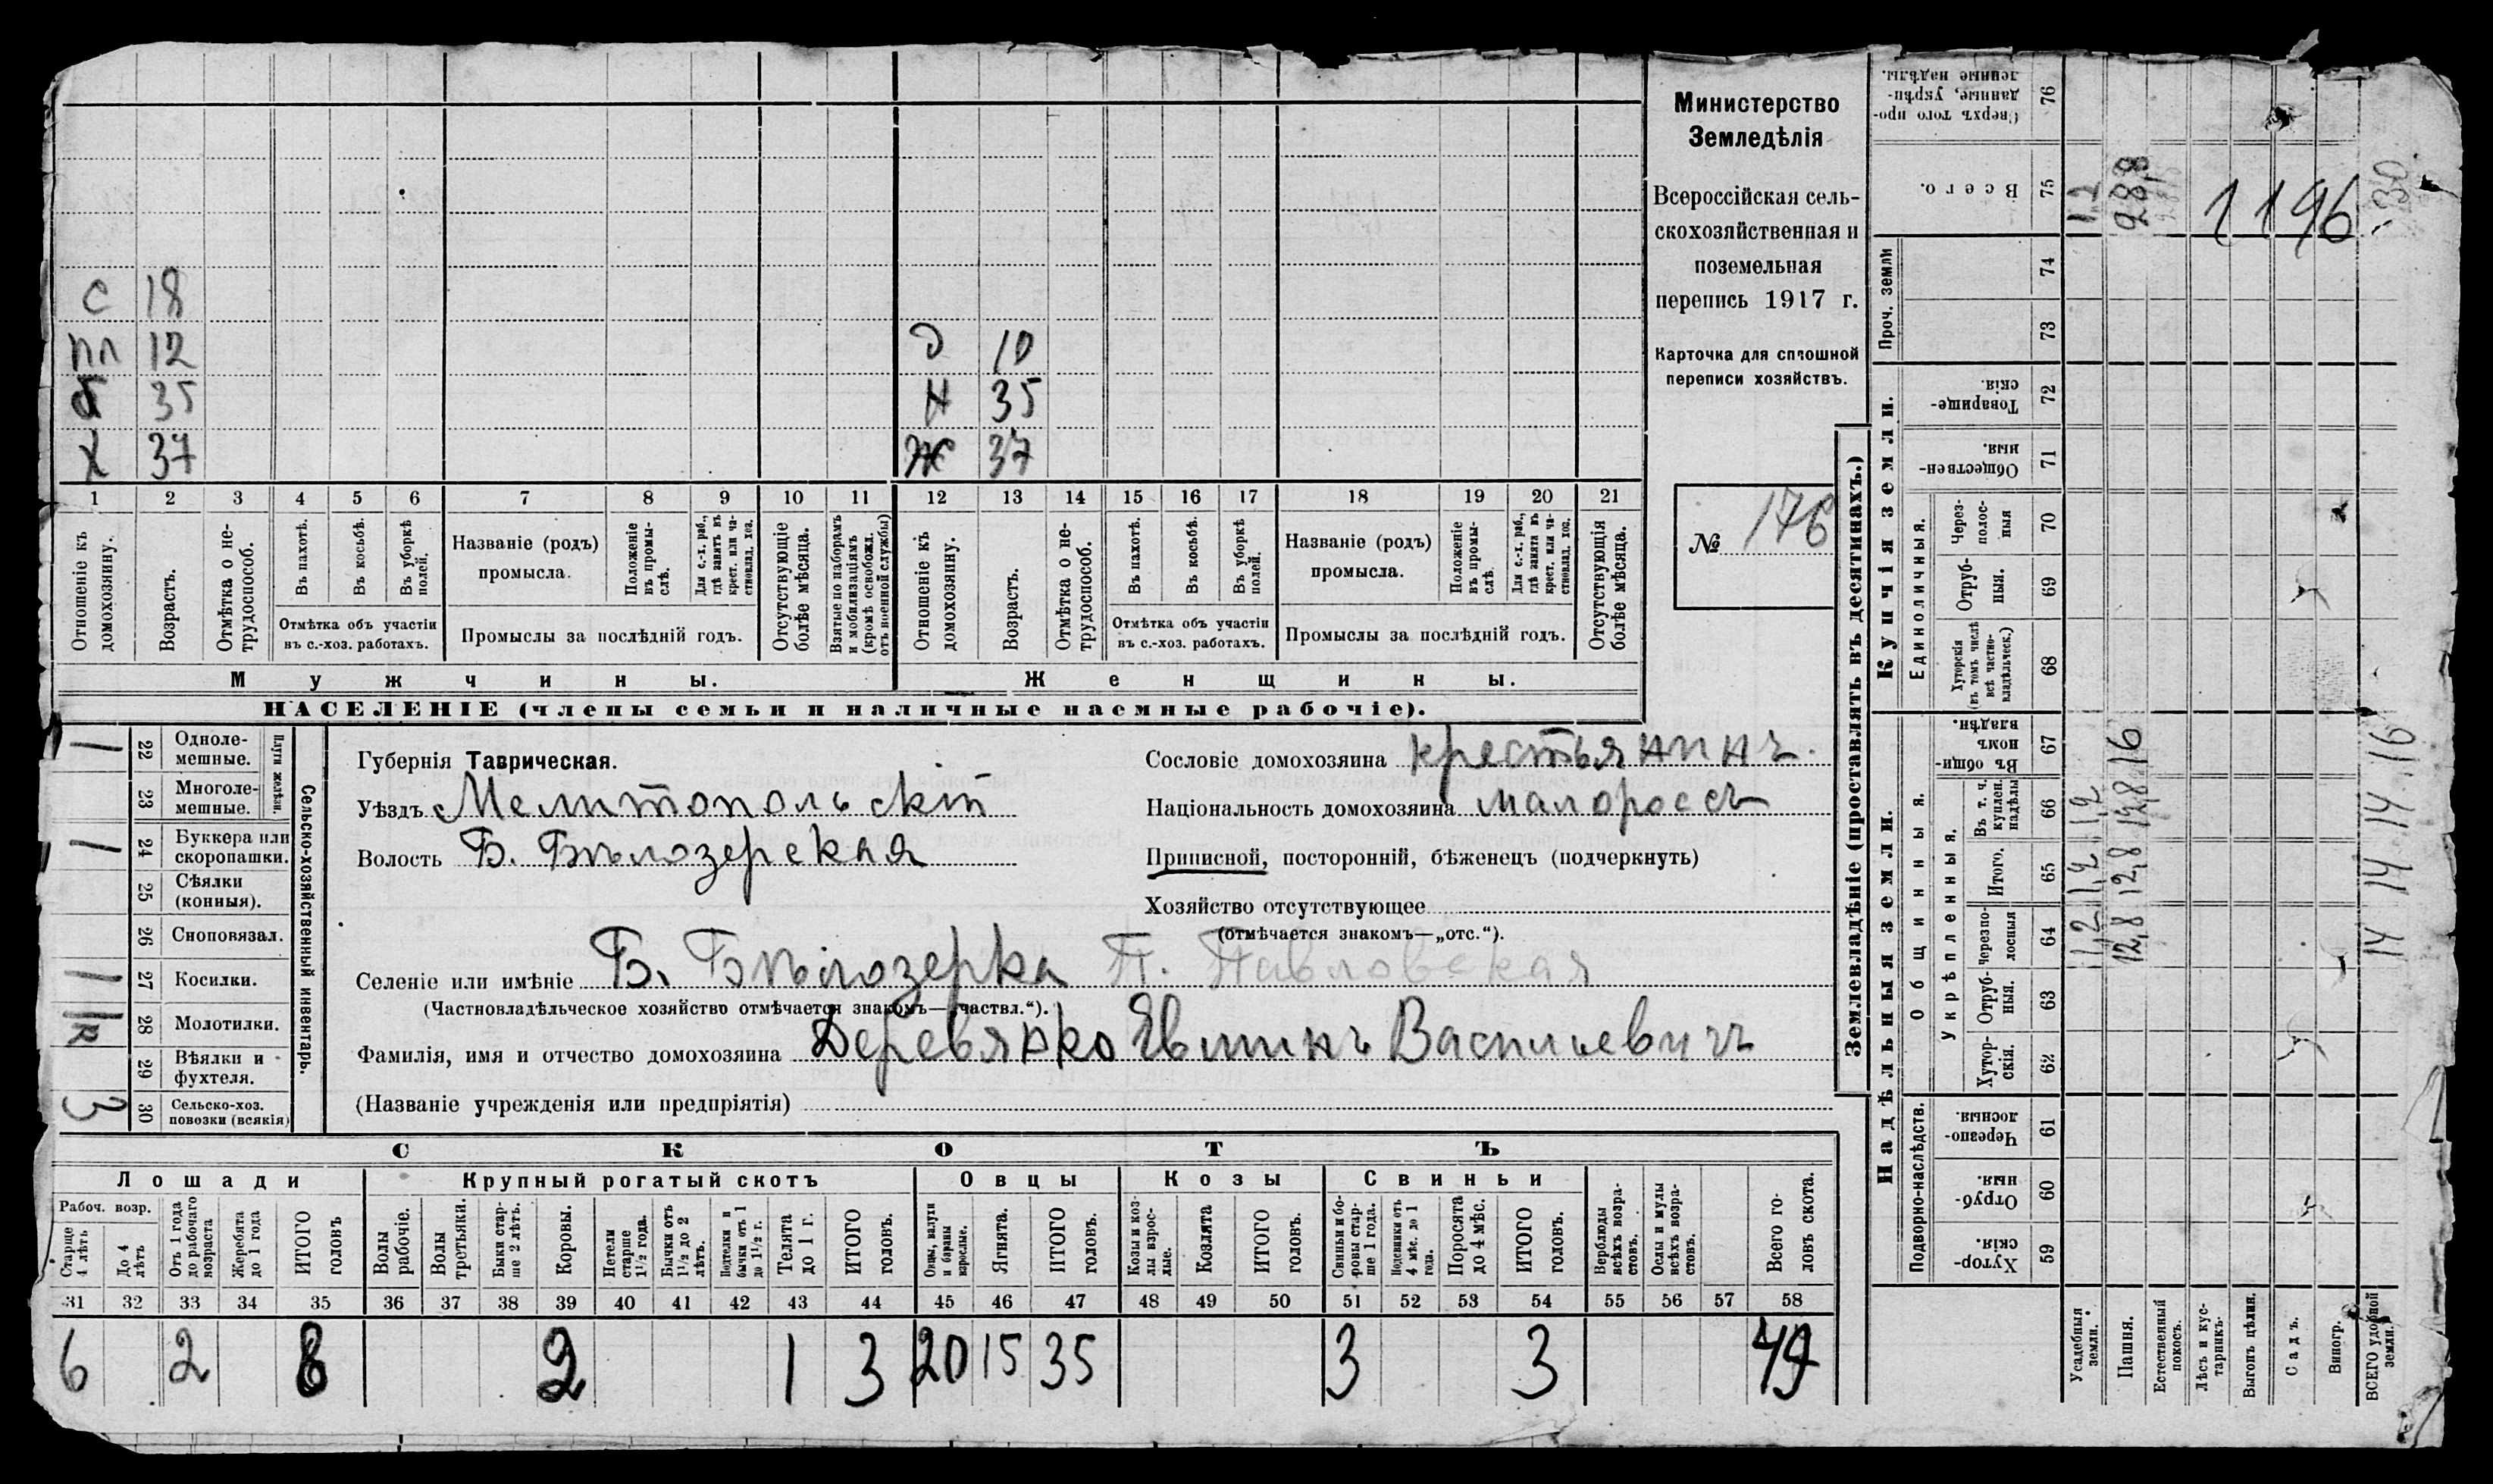 Министерство
Земледѣлія
Всероссійская сель-
скохозяйственная и
поземельная
перепись 1917 г.
Карточка для сплошной
переписи хозяйствъ.
№ 176
С 18
пл 12
б 35
Х 37
д 10
н 35
Ж 37
1 2 3 4 5 6 7 8 9 10 11 12 13 14 15 16 17 18 19 20 21
Отношеніе къ домохозяину.
Возрастъ.
Отмѣтка о не-трудоспособ.
Въ пахотѣ.
Въ косьбѣ.
Въ уборкѣ полей.
Отмѣтка объ участіи
въ с.-хоз. работахъ.
Названіе (родъ)
промысла.
Положеніе въ промы-слѣ.
Для с.-х. раб., гдѣ занятъ въ крест. или ча-стновлад. хоз.
Промыслы за послѣдній годъ.
Отсутствующіе болѣе мѣсяца.
Взятые по наборамъ и мобилизаціямъ (кромѣ освобожд. отъ военной службы)
Отношеніе къ домохозяину.
Возрастъ.
Отмѣтка о не-трудоспособ.
Въ пахотѣ.
Въ косьбѣ.
Въ уборкѣ полей.
Отмѣтка объ участіи
въ с.-хоз. работахъ.
Названіе (родъ)
промысла.
Положеніе въ промы-слѣ.
Для с.-х. раб., гдѣ занята въ крест. или ча-стновлад. хоз.
Промыслы за послѣдній годъ.
Отсутствующія болѣе мѣсяца.
Мужчины.
Женщины.
НАСЕЛЕНІЕ (члены семьи и наличные наемные рабочіе).
Сельско-хозяйственный инвентарь.
Плуги желѣзн.
1 22 Одноле-мешные.
23 Многоле-мешные.
1 24 Буккера или скоропашки.
25 Сѣялки (конныя).
26 Сноповязал.
1 27 Косилки.
28 Молотилки.
29 Вѣялки и фухтеля.
3 30 Сельско-хоз. повозки (всякія)
Губернія Таврическая.
Уѣздъ Мелитопольскій
Волость Б. Бѣлозерская
Сословіе домохозяина крестьянинъ.
Національность домохозяина малороссъ
Приписной, посторонній, бѣженецъ (подчеркнуть)
Хозяйство отсутствующее
(отмѣчается знакомъ—„отс.“).
Селеніе или имѣніе Б. Бѣлозерка П. Павловская
(Частновладѣльческое хозяйство отмѣчается знакомъ—„частвл.“).
Фамилія, имя и отчество домохозяина Деревянко Васильевичъ
(Названіе учрежденія или предпріятія)
СКОТЪ
Лошади Крупный рогатый скотъ Овцы Козы Свиньи
Рабоч. возр.
Старше 4 лѣтъ
До 4 лѣтъ
Отъ 1 года до рабочаго возраста
Жеребята до 1 года
ИТОГО головъ
Волы рабочіе.
Волы третьяки.
Быки стар-ше 2 лѣтъ.
Коровы.
Нетели старше 1½ года.
Бычки отъ 1½ до 2 лѣтъ.
Подтелки и бычки отъ 1 до 1½ г.
Телята до 1 г.
ИТОГО головъ.
Овцы, валухи и бараны взрослые.
Ягнята.
ИТОГО головъ.
Козы и коз-лы взрос-лые.
Козлята
ИТОГО головъ.
Свиньи и бо-ровы стар-ше 1 года.
Подсвинки отъ 4 мѣс. до 1 года.
Поросята до 4 мѣс.
ИТОГО головъ.
Верблюды всѣхъ возра-стовъ.
Ослы и мулы всѣхъ возра-стовъ.
Всего го-ловъ скота.
31 32 33 34 35 36 37 38 39 40 41 42 43 44 45 46 47 48 49 50 51 52 53 54 55 56 57 58
6 2 8 2 1 3 20 15 35 3 3 49
Землевладѣніе (проставлять въ десятинахъ.)
Надѣльныя земли.
Купчія земли.
Проч. земли
Подворно-наслѣдств.
Общинныя.
Укрѣпленныя.
Единоличныя.
Сверхъ того про-данные, укрѣп-ленные надѣлы. 76
Всего. 75
74
73
Товарище-скія. 72
Обществен-ныя. 71
Через-полос-ныя 70
Отруб-ныя. 69
Хуторскія (въ томъ числѣ всѣ частно-владѣльческ.) 68
Въ общин-номъ владѣн. 67
Въ т. ч. куплен. надѣлы 66
Итого. 65
Черезпо-лосныя 64
Отруб-ныя. 63
Хутор-скія. 62
Черезпо-лосныя. 61
Отруб-ныя. 60
Хутор-скія. 59
Усадебныя земли. 1,2 1,2 1,2
Пашня. 12,8 12,8 12,8 16 28,8
Естественный покосъ.
Лѣсъ и кус-тарникъ.
Выгонъ цѣлин.
Садъ.
Виногр.
ВСЕГО удобной земли. 14 14 14 16
1196